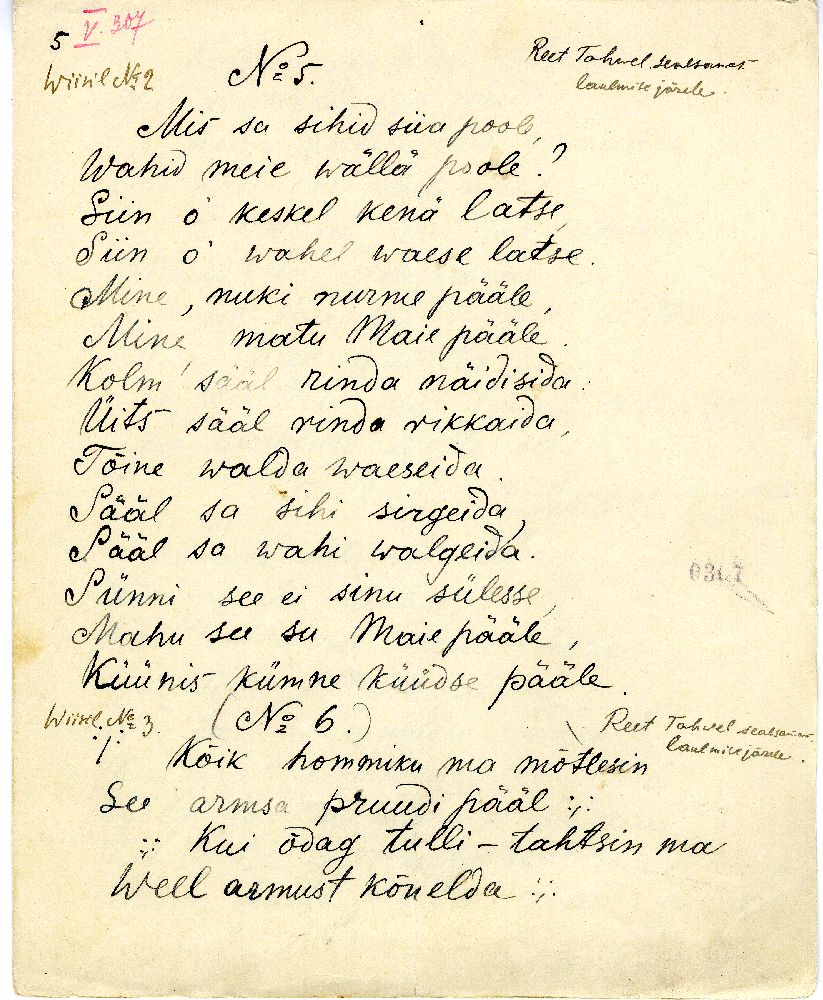 5 V. 307
Wiisil №2
№ 5.
Reet Tahwel sealsamas
laulmise järele.
Mis sa sihid siia poole,
Wahid meie wällä poole?
Siin o' keskel kenä latse,
Siin o' wahel waese latse.
Mine, nuki nurme pääle,
Mine matu Maie pääle.
Kolm' sääl rinda näidisida:
Üits sääl rinda rikkaida,
Tõine walda waeseida.
Sääl sa sihi sirgeida,
Sääl sa wahi walgeida.
Sünni see ei sinu sülesse,
Mahu see su Maie pääle,
Küünis kümne küüdse pääle.
Wiisil №3.
(№ 6.)
Reet Tahwel sealsamas
laulmise järele.
Kõik hommiku ma mõtlesin
See armsa pruudi pääl :,:
:,: Kui õdag tulli – tahtsin ma
Weel armust kõnelda :,: